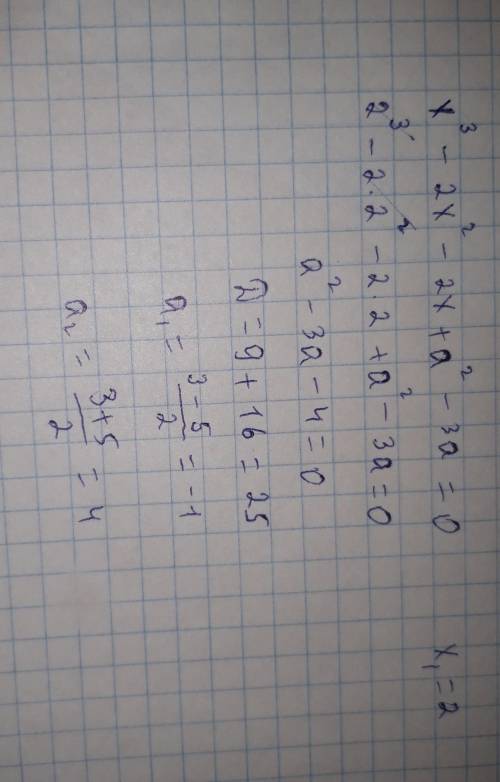 x³ - 2x² - 2x + a² - 3a = 0    x₁ = 2
2³ - 2·2² - 2·2 + a² - 3a = 0
a² - 3a - 4 = 0
D = 9 + 16 = 25
a₁ = (3 - 5)/2 = -1
a₂ = (3 + 5)/2 = 4